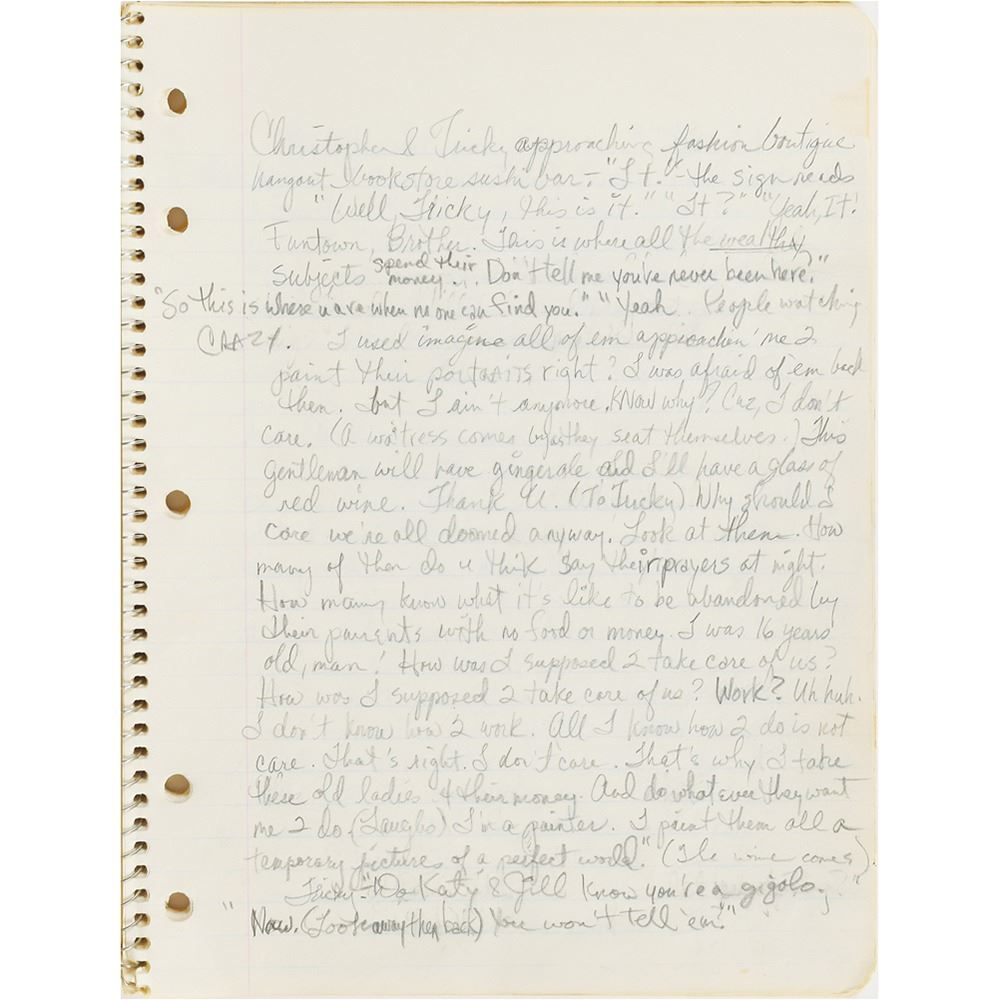 Christopher & Tricky approaching fashion boutique
hangout bookstore sushi bar - "It." - the sign reads
"Well, Tricky, this is it." "It?" "Yeah, It!
Funtown, Brother. This is where all the wealthy
subjects spend their money... Don't tell me you've never been here."
"So this is where u are when no one can find you." "Yeah. People watching
CRAZY. I used imagine all of em approachin' me 2
paint their portraits right? I was afraid of 'em back
then. but I ain't anymore. Know why? Cuz, I don't
care. (A waitress comes by as they seat themselves.) This
gentleman will have gingerale and I'll have a glass of
red wine. Thank U. (To Tricky) Why should I
care we're all doomed anyway. Look at them. How
many of them do u think say their prayers at night.
How many know what it's like to be abandoned by
their parents with no food or money. I was 16 years
old, man! How was I supposed 2 take care of us?
How was I supposed 2 take care of us? Work? Uh huh.
I don't know how 2 work. All I know how 2 do is not
care. That's right. I don't care. That's why I take
these old ladies & their money. And do whatever they want
me 2 do (Laughs) I'm a painter. I paint them all a
temporary pictures of a perfect world." (The wine comes).
Tricky - "Do Katy & Jill know you're a gigolo?"
"Naw. (Look away then back) You won't tell 'em?"